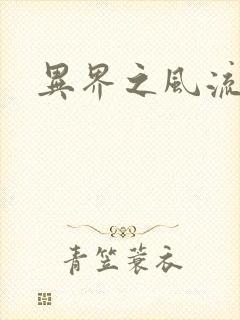 異界之風流
青笠蓑衣